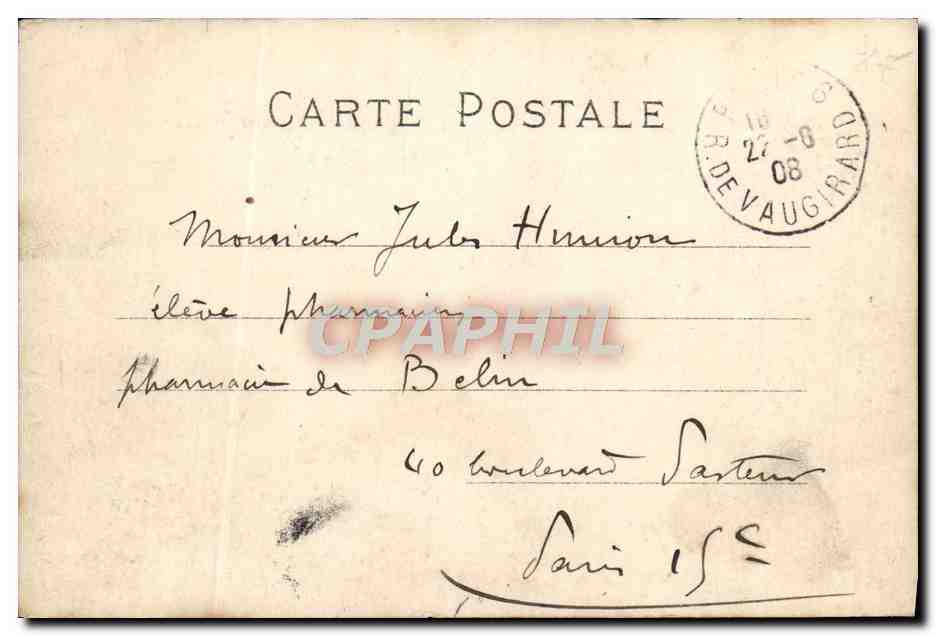 CARTE POSTALE
R. DE VAUGIRARD
27 -8
08
Monsieur Jules
élève pharmacien
CPAPHIL
pharmacie de Belin
40 boulevard Pasteur
Paris 15e